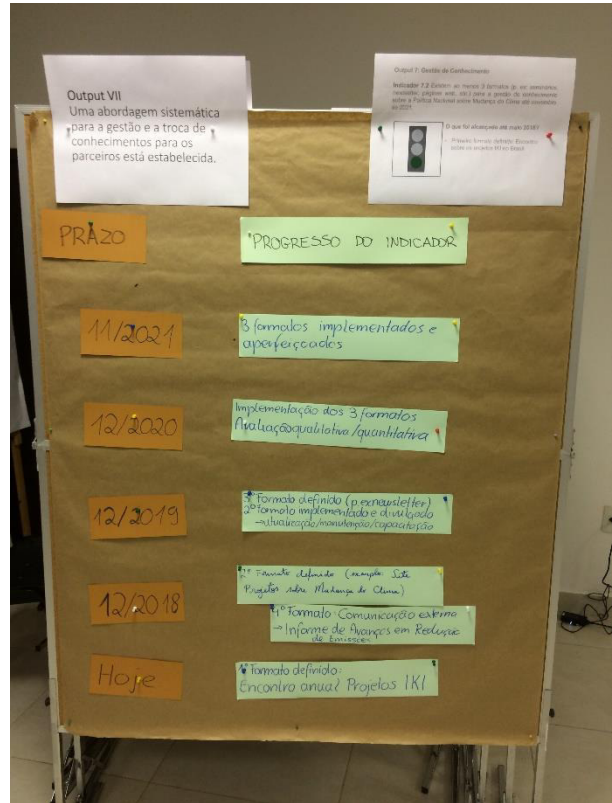 Output VII
Uma abordagem sistemática
para a gestão e a troca de
conhecimentos para os
parceiros está estabelecida.
Output 7: Gestão de Conhecimento
Indicador 7.2 Existem ao menos 3 formatos (p. ex. seminários,
newsletter, páginas web, etc.) para a gestão de conhecimento
sobre a Política Nacional sobre Mudança do Clima até novembro
de 2021.
O que foi alcançado até maio 2018?
- Primeiro formato definido: Encontro
sobre os projetos IKI no Brasil
PRAZO
PROGRESSO DO INDICADOR
11/2021
3 formatos implementados e
aperfeiçoados
12/2020
Implementação dos 3 formatos
Avaliação qualitativa/quantitativa
12/2019
3º Formato definido (p.ex newsletter)
2º formato implementado e divulgado
→ atualização/manutenção/capacitação
12/2018
2º Formato definido (exemplo Site
Projetos sobre Mudança do Clima)
4º Formato: Comunicação externa
→ Informe de Avanços em Redução
de Emissões
Hoje
1º Formato definido:
Encontro anual Projetos IKI